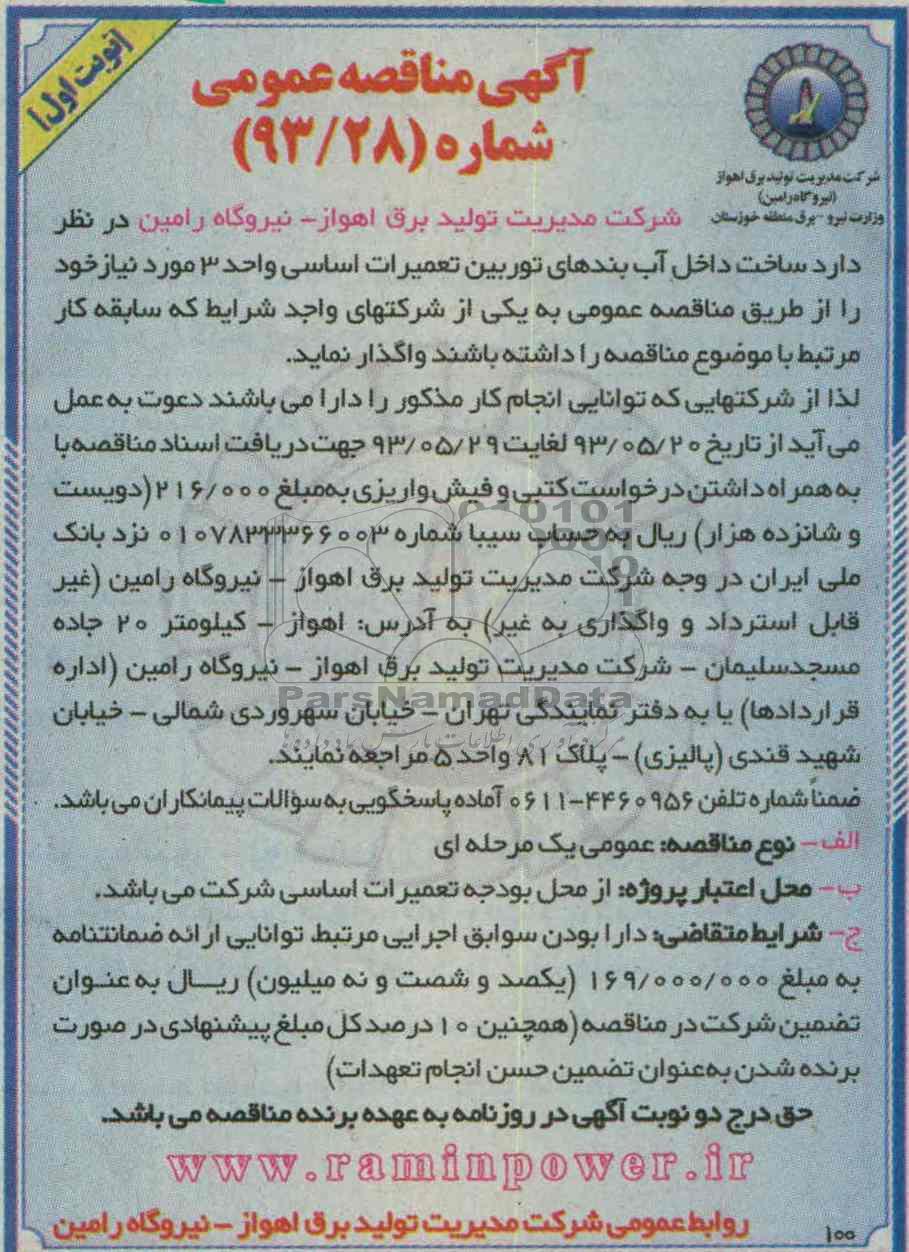 نوبت اول
آگهی مناقصه عمومی
شماره (۹۳/۲۸)
شرکت مدیریت تولید برق اهواز
(نیروگاه رامین)
وزارت نیرو - برق منطقه خوزستان
شرکت مدیریت تولید برق اهواز- نیروگاه رامین در نظر
دارد ساخت داخل آب بندهای توربین تعمیرات اساسی واحد ۳ مورد نیاز خود
را از طریق مناقصه عمومی به یکی از شرکتهای واجد شرایط که سابقه کار
مرتبط با موضوع مناقصه را داشته باشند واگذار نماید.
لذا از شرکتهایی که توانایی انجام کار مذکور را دارا می باشند دعوت به عمل
می آید از تاریخ ۹۳/۰۵/۲۰ لغایت ۹۳/۰۵/۲۹ جهت دریافت اسناد مناقصه با
به همراه داشتن درخواست کتبی و فیش واریزی به مبلغ ۲۱۶/۰۰۰ (دویست
و شانزده هزار) ریال به حساب سیبا شماره ۰۱۰۷۸۳۳۳۶۶۰۰۳ نزد بانک
ملی ایران در وجه شرکت مدیریت تولید برق اهواز - نیروگاه رامین (غیر
قابل استرداد و واگذاری به غیر) به آدرس: اهواز - کیلومتر ۲۰ جاده
مسجدسلیمان - شرکت مدیریت تولید برق اهواز - نیروگاه رامین (اداره
قراردادها) یا به دفتر نمایندگی تهران - خیابان سهروردی شمالی - خیابان
شهید قندی (پالیزی) - پلاک ۸۱ واحد ۵ مراجعه نمایند.
ضمناً شماره تلفن ۴۴۶۰۹۵۶-۰۶۱۱ آماده پاسخگویی به سؤالات پیمانکاران می باشد.
الف- نوع مناقصه: عمومی یک مرحله ای
ب- محل اعتبار پروژه: از محل بودجه تعمیرات اساسی شرکت می باشد.
ج- شرایط متقاضی: دارا بودن سوابق اجرایی مرتبط، توانایی ارائه ضمانتنامه
به مبلغ ۱۶۹/۰۰۰/۰۰۰ (یکصد و شصت و نه میلیون) ریال به عنوان
تضمین شرکت در مناقصه (همچنین ۱۰ درصد کل مبلغ پیشنهادی در صورت
برنده شدن به عنوان تضمین حسن انجام تعهدات)
حق درج دو نوبت آگهی در روزنامه به عهده برنده مناقصه می باشد.
www.raminpower.ir
روابط عمومی شرکت مدیریت تولید برق اهواز - نیروگاه رامین
۱۰۰
ParsNamadData